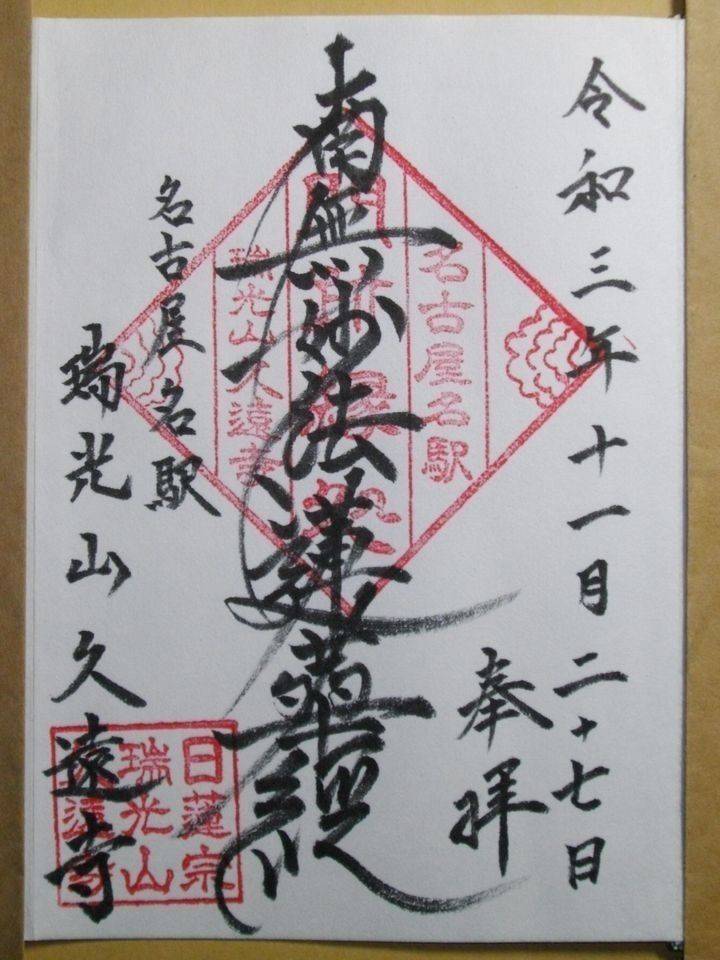 令和三年十一月二十七日
奉拝
南無妙法蓮華経
名古屋名駅
瑞光山久遠寺
名古屋名駅
瑞光山久遠寺
日蓮宗
瑞光山
久遠寺